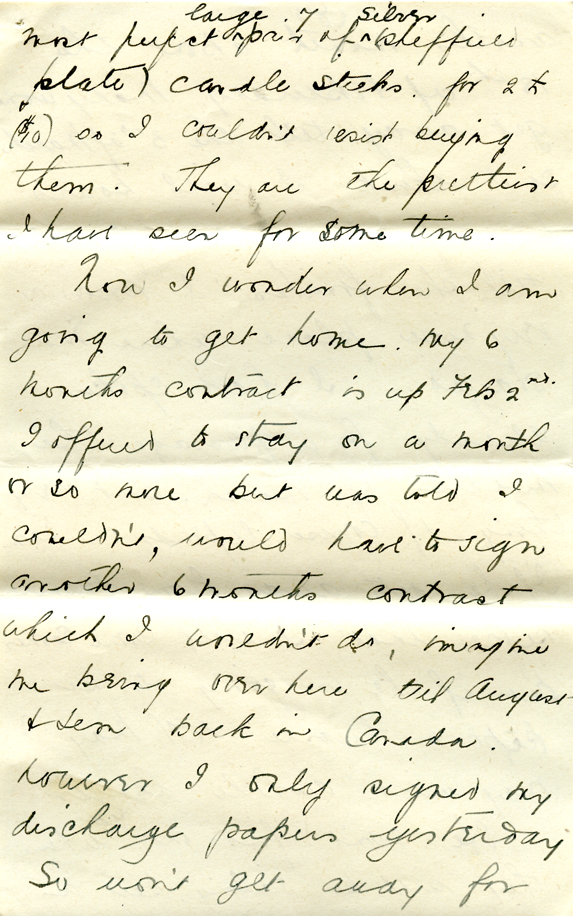 large silver
most perfect pair of (Sheffield
plate) candle sticks. for 2 £
($10) so I couldn't resist buying
them. They are the prettiest
I have seen for some time.
Now I wonder when I am
going to get home. my 6
months contract is up Feb 2nd.
I offered to stay on a month
or so more but was told I
couldn't, would have to sign
another 6 months contract
which I wouldn't do, imagine
me being over here til August
& back in Canada.
however I only signed my
discharge papers yesterday
So won't get away for